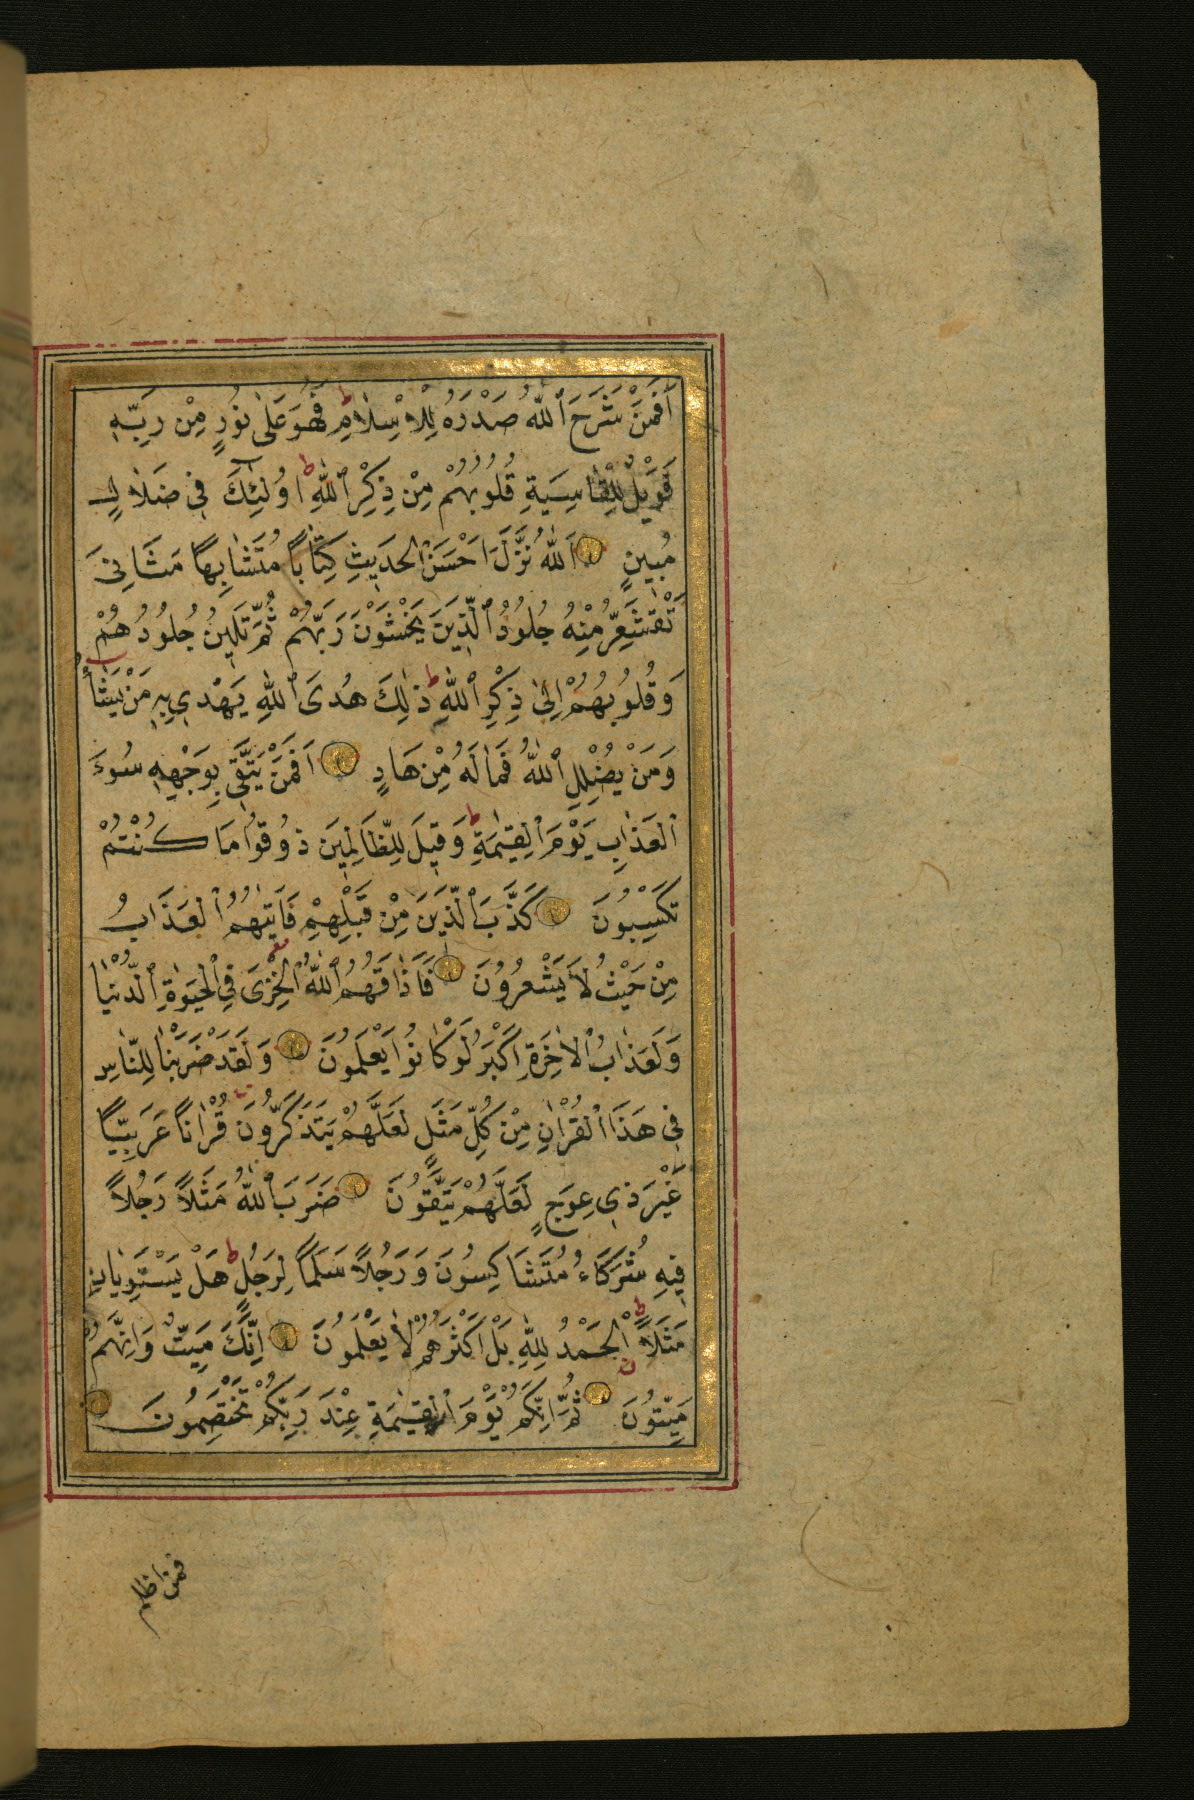 اَفَمَنْ شَرَحَ اللّٰهُ صَدْرَهُ لِلْاِسْلَامِ فَهُوَ عَلٰى نُورٍ مِنْ رَبِّهٖ
فَوَيْلٌ لِلْقَاسِيَةِ قُلُوبُهُمْ مِنْ ذِكْرِ اللّٰهِ اُولٰئِكَ فٖى ضَلَالٍ
مُبٖينٍ اَللّٰهُ نَزَّلَ اَحْسَنَ الْحَدٖيثِ كِتَابًا مُتَشَابِهًا مَثَانِىَ
تَقْشَعِرُّ مِنْهُ جُلُودُ الَّذٖينَ يَخْشَوْنَ رَبَّهُمْ ثُمَّ تَلٖينُ جُلُودُهُمْ
وَقُلُوبُهُمْ اِلٰى ذِكْرِ اللّٰهِ ذٰلِكَ هُدَى اللّٰهِ يَهْدٖى بِهٖ مَنْ يَشَاءُ
وَمَنْ يُضْلِلِ اللّٰهُ فَمَا لَهُ مِنْ هَادٍ اَفَمَنْ يَتَّقٖى بِوَجْهِهٖ سُوءَ
الْعَذَابِ يَوْمَ الْقِيٰمَةِ وَقٖيلَ لِلظَّالِمٖينَ ذُوقُوا مَا كُنْتُمْ
تَكْسِبُونَ كَذَّبَ الَّذٖينَ مِنْ قَبْلِهِمْ فَاَتٰيهُمُ الْعَذَابُ
مِنْ حَيْثُ لَا يَشْعُرُونَ فَاَذَاقَهُمُ اللّٰهُ الْخِزْىَ فِى الْحَيٰوةِ الدُّنْيَا
وَلَعَذَابُ الْاٰخِرَةِ اَكْبَرُ لَوْ كَانُوا يَعْلَمُونَ وَلَقَدْ ضَرَبْنَا لِلنَّاسِ
فٖى هٰذَا الْقُرْاٰنِ مِنْ كُلِّ مَثَلٍ لَعَلَّهُمْ يَتَذَكَّرُونَ قُرْاٰنًا عَرَبِيًّا
غَيْرَ ذٖى عِوَجٍ لَعَلَّهُمْ يَتَّقُونَ ضَرَبَ اللّٰهُ مَثَلًا رَجُلًا
فٖيهِ شُرَكَاءُ مُتَشَاكِسُونَ وَرَجُلًا سَلَمًا لِرَجُلٍ هَلْ يَسْتَوِيَانِ
مَثَلًا اَلْحَمْدُ لِلّٰهِ بَلْ اَكْثَرُهُمْ لَا يَعْلَمُونَ اِنَّكَ مَيِّتٌ وَاِنَّهُمْ
مَيِّتُونَ ثُمَّ اِنَّكُمْ يَوْمَ الْقِيٰمَةِ عِنْدَ رَبِّكُمْ تَخْتَصِمُونَ
فمن اظلم